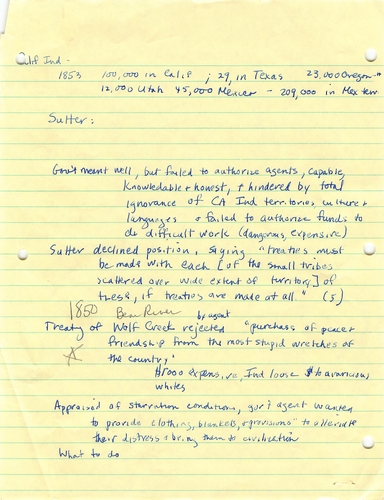 Calif Ind -
1853 100,000 in Calif ; 29, in Texas 23,000 Oregon
12,000 Utah 45,000 Mexico - 209,000 in Mex terr
Sutter:
Gov't meant well, but failed to authorize agents, capable,
knowledable & honest, & hindered by total
ignorance of CA Ind territories, culture &
languages & failed to authorize funds to
do difficult work (dangerous, expensive)
Sutter declined position, saying "treaties must
be made with each [of the small tribes
scattered over wide extent of territory] of
these, if treaties are made at all." (5)
1850 Bear River
by agent
Treaty of Wolf Creek rejected "purchase of peace &
friendship from the most stupid wretches of
the country,"
expensive, Ind loose $ to avaricious
whites
Apprised of starvation conditions, gov't agent wanted
to provide clothing, blankets, & provisions" to alleviate
their distress & bring them to civilization
What to do